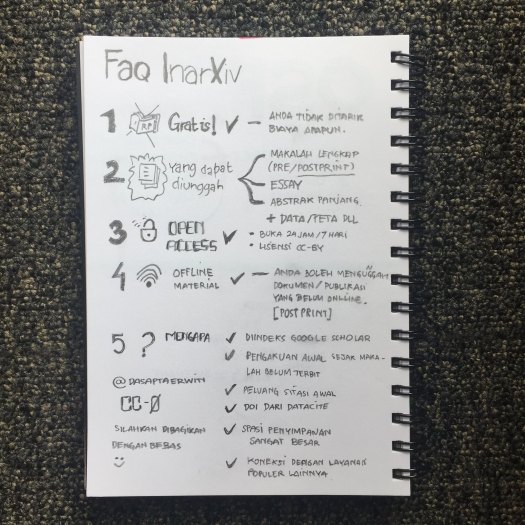 Faq InarXiv
1 RP Gratis! ✓ — ANDA TIDAK DITARIK
BIAYA APAPUN.
2 Yang dapat
diunggah
MAKALAH LENGKAP
(PRE/POSTPRINT)
ESSAY
ABSTRAK PANJANG.
+ DATA/PETA DLL
3 OPEN
ACCESS ✓
• BUKA 24 JAM/7 HARI
• LISENSI CC-BY
4 OFFLINE
MATERIAL ✓ — ANDA BOLEH MENGUGGAH
DOKUMEN/PUBLIKASI
YANG BELUM ONLINE.
[POSTPRINT]
5 ? MENGAPA
✓ DIINDEKS GOOGLE SCHOLAR
✓ PENGAKUAN AWAL SEJAK MAKA-
LAH BELUM TERBIT
✓ PELUANG SITASI AWAL
✓ DOI DARI DATACITE
✓ SPASI PENYIMPANAN
SANGAT BESAR
✓ KONEKSI DENGAN LAYANAN
POPULER LAINNYA
@DASAPTAERWIN
CC-0
SILAHKAN DIBAGIKAN
DENGAN BEBAS